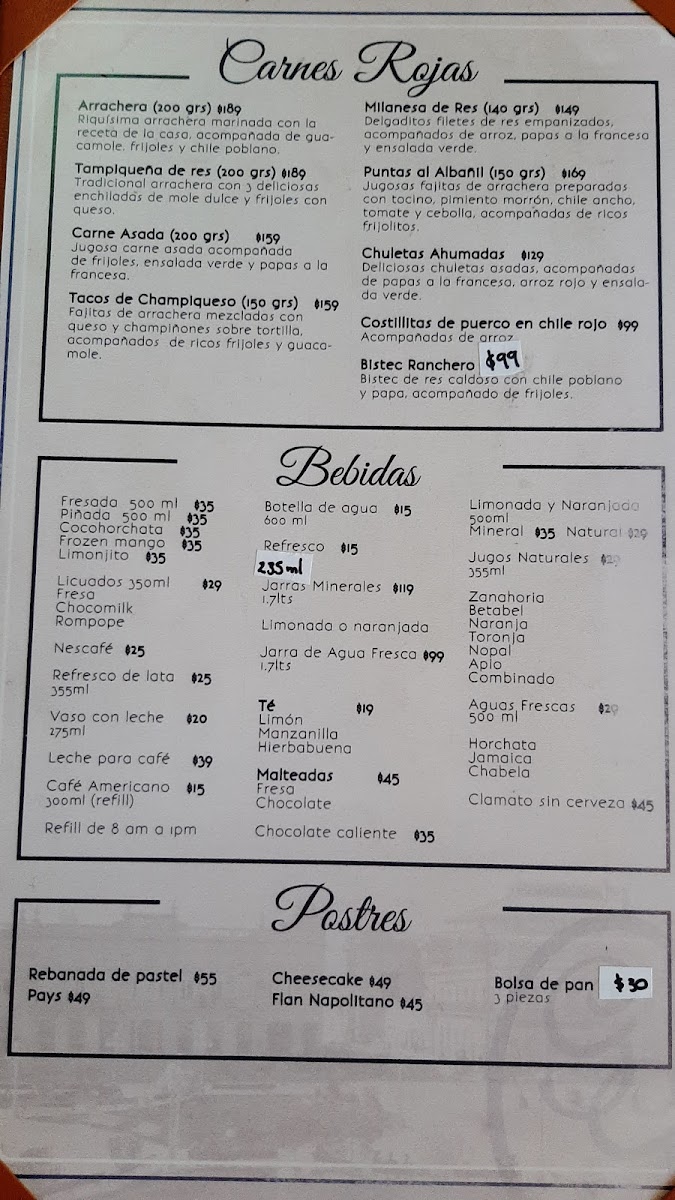 Carnes Rojas
Arrachera (200 grs) $189
Riquísima arrachera marinada con la
receta de la casa, acompañada de gua-
camole, frijoles y chile poblano.
Tampiqueña de res (200 grs) $189
Tradicional arrachera con 3 deliciosas
enchiladas de mole dulce y frijoles con
queso.
Carne Asada (200 grs) $159
Jugosa carne asada acompañada
de frijoles, ensalada verde y papas a la
francesa.
Tacos de Champiqueso (150 grs) $159
Fajitas de arrachera mezcladas con
queso y champiñones sobre tortilla,
acompañados de ricos frijoles y guaca-
mole.
Milanesa de Res (140 grs) $149
Delgaditos filetes de res empanizados,
acompañados de arroz, papas a la francesa
y ensalada verde.
Puntas al Albañil (150 grs) $169
Jugosas fajitas de arrachera preparadas
con tocino, pimiento morrón, chile ancho,
tomate y cebolla, acompañadas de ricos
frijolitos.
Chuletas Ahumadas $129
Deliciosas chuletas asadas, acompañadas
de papas a la francesa, arroz rojo y ensala-
da verde.
Costillitas de puerco en chile rojo $99
Acompañadas de arroz
Bistec Ranchero $99
Bistec de res caldoso con chile poblano
y papa, acompañado de frijoles.
Bebidas
Fresada 500 ml $35
Piñada 500 ml $35
Cocohorchata $35
Frozen mango $35
Limonjito $35
Licuados 350ml $29
Fresa
Chocomilk
Rompope
Nescafé $25
Refresco de lata $25
355ml
Vaso con leche $20
275ml
Leche para café $39
Café Americano $15
300ml (refill)
Refill de 8 am a 1pm
Botella de agua $15
600 ml
Refresco $15
235ml
Jarras Minerales $119
1.7lts
Limonada o naranjada
Jarra de Agua Fresca $99
1.7lts
Té $19
Limón
Manzanilla
Hierbabuena
Malteadas $45
Fresa
Chocolate
Chocolate caliente $35
Limonada y Naranjada
500ml
Mineral $35 Natural $29
Jugos Naturales
355ml
Zanahoria
Betabel
Naranja
Toronja
Nopal
Apio
Combinado
Aguas Frescas
500 ml
Horchata
Jamaica
Chabela
Clamato sin cerveza $45
Postres
Rebanada de pastel $55
Pays $49
Cheesecake $49
Flan Napolitano $45
Bolsa de pan $30
3 piezas